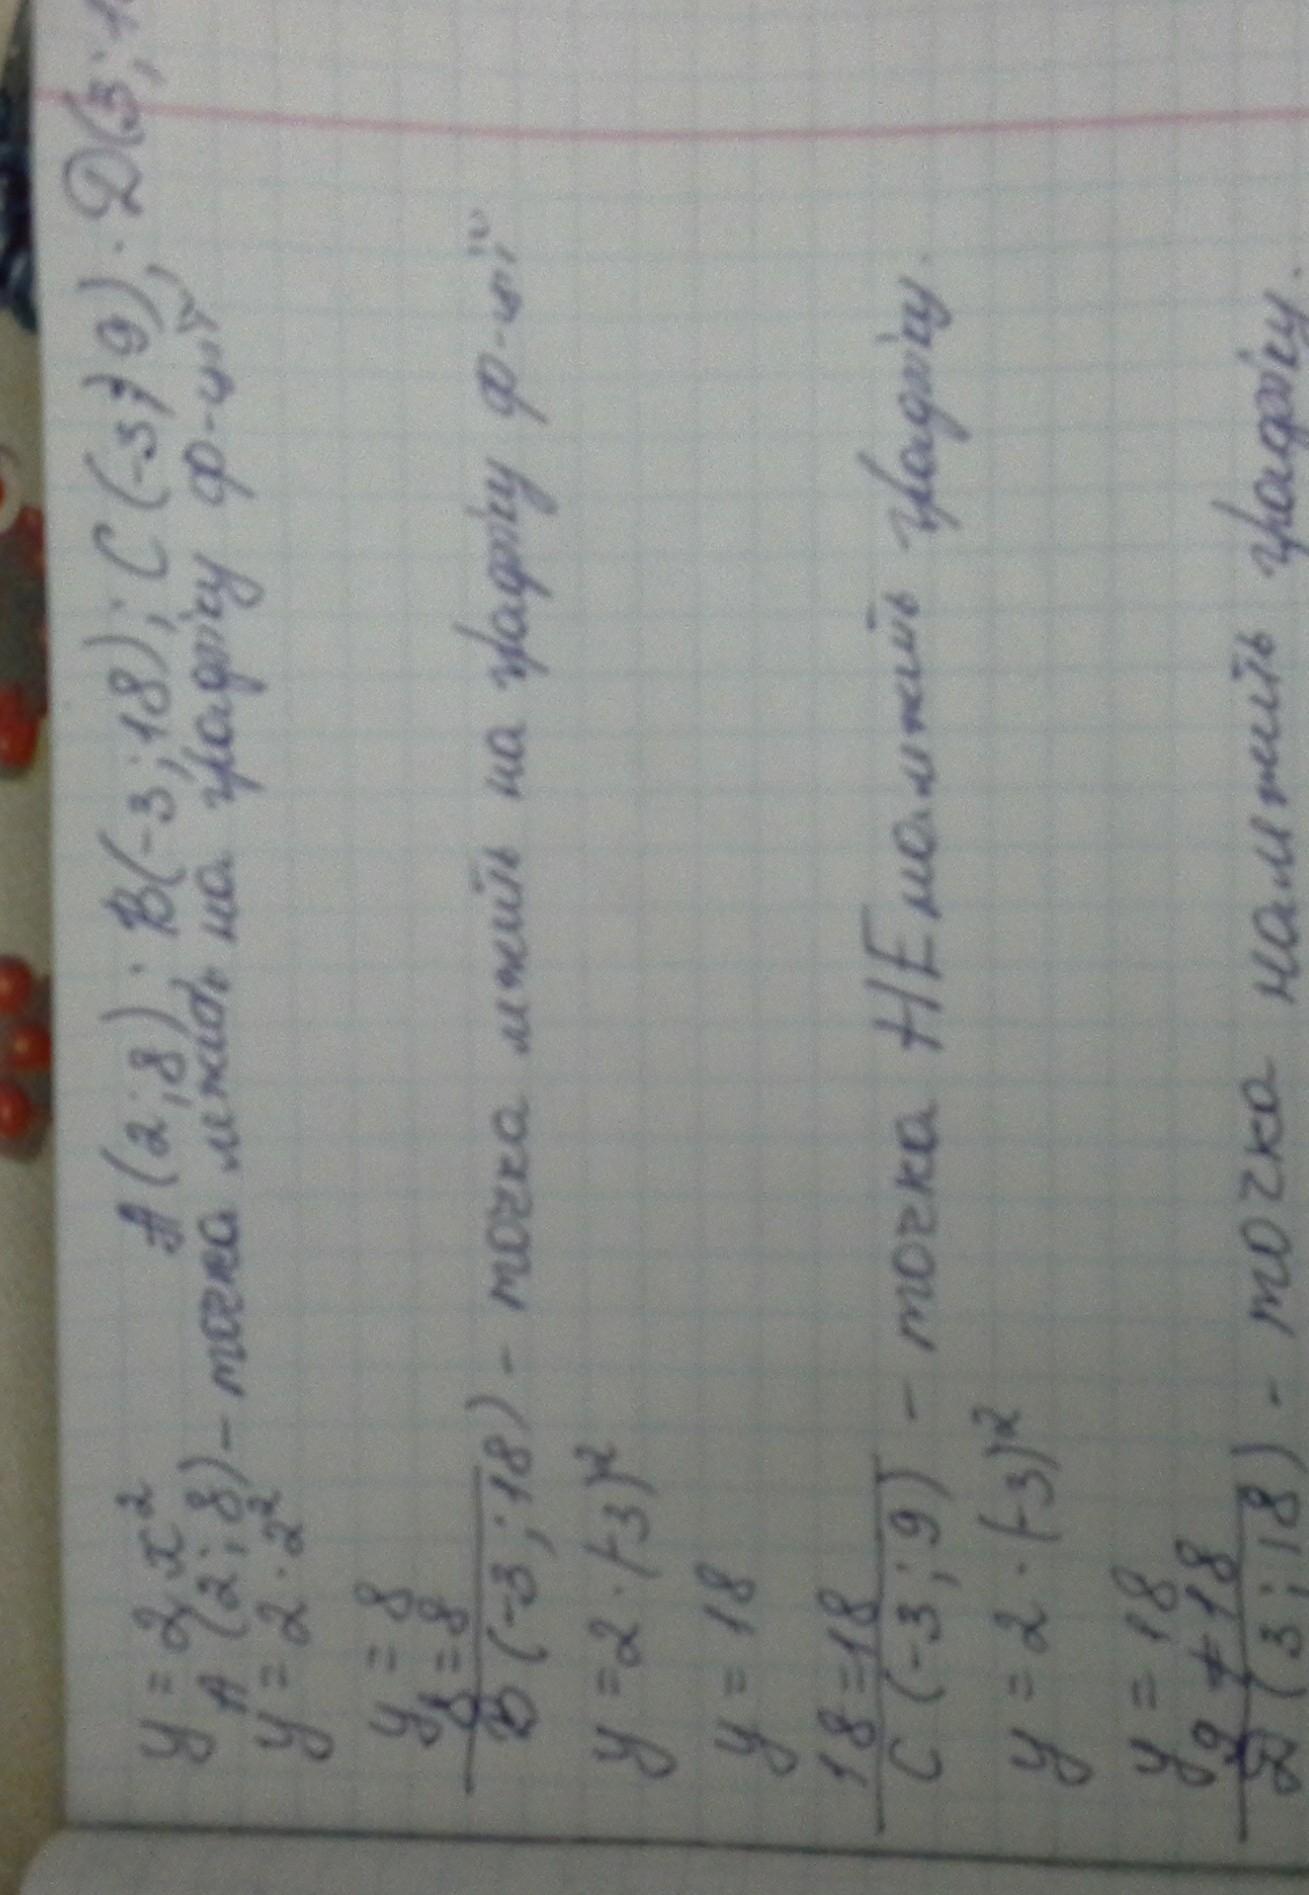 y = 2x² А (2; 8); В(-3; 18); С (-3; 9); D(3; 1
А (2; 8) - точка лежить на графіку ф-ції
y = 2 · 2²
y = 8
8 = 8
В (-3; 18) - точка лежить на графіку ф-ції
y = 2 · (-3)²
y = 18
18 = 18
С (-3; 9) - точка НЕ належить графіку.
y = 2 · (-3)²
y = 18
9 ≠ 18
D (3; 18) - точка належить графіку.